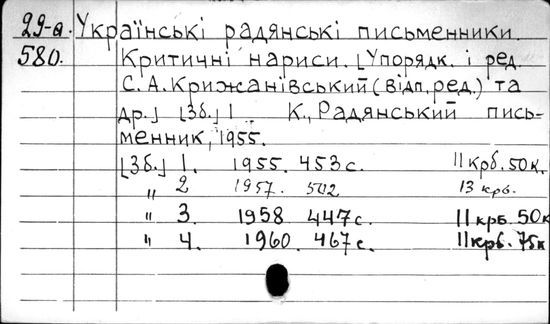 29-а. Українські радянські письменники.
580. Критичні нариси. [Упорядк. і ред.
С. А. Крижанівський (відп. ред.) та
др.] [Зб.] 1 К., Радянський пись-
менник, 1955.
[Зб.] 1. 1955. 453 с. 11 крб. 50 к.
" 2 1957. 502 13 крб.
" 3. 1958 447 с. 11 крб. 50 к
" 4. 1960. 467 с. 11 крб. 75 к